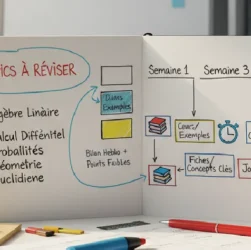 ICS À RÉVISER
gèbre Linàire
lcul Différitel
roballités
éométrie
uclidiene
Cours/
Exemples
Bilan Hebdo +
Points Faibles
Semaine 1
Semaine 3
Cours/
Exemples
Fiches/
Concepts Clés